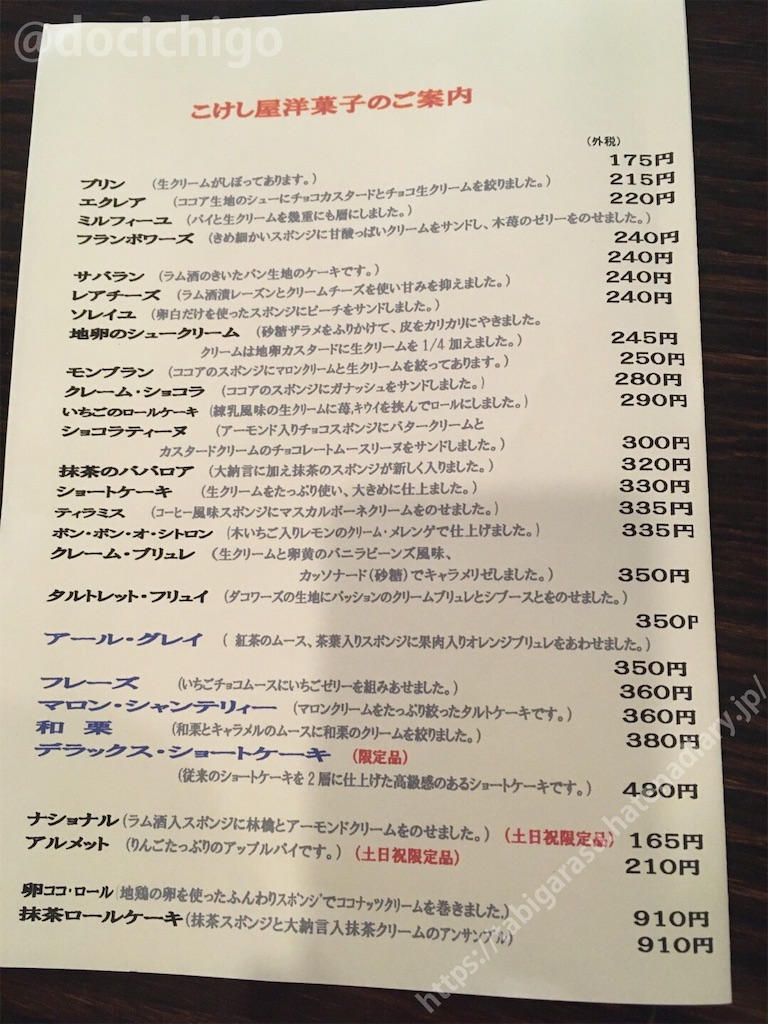 @docichigo
こけし屋洋菓子のご案内
(外税)
プリン (生クリームがしぼってあります。) 175円
エクレア (ココア生地のシューにチョコカスタードとチョコ生クリームを絞りました。) 215円
ミルフィーユ (パイと生クリームを幾重にも層にしました。) 220円
フランボワーズ (きめ細かいスポンジに甘酸っぱいクリームをサンドし、木苺のゼリーをのせました。)
240円
サバラン (ラム酒のきいたパン生地のケーキです。) 240円
レアチーズ (ラム酒漬レーズンとクリームチーズを使い甘みを抑えました。) 240円
ソレイユ (卵白だけを使ったスポンジにピーチをサンドしました。) 240円
地卵のシュークリーム (砂糖ザラメをふりかけて、皮をカリカリにやきました。
クリームは地卵カスタードに生クリームを1/4加えました。) 245円
モンブラン (ココアのスポンジにマロンクリームと生クリームを絞ってあります。) 250円
クレーム・ショコラ (ココアのスポンジにガナッシュをサンドしました。) 280円
いちごのロールケーキ (練乳風味の生クリームに苺,キウイを挟んでロールにしました。) 290円
ショコラティーヌ (アーモンド入りチョコスポンジにバタークリームと
カスタードクリームのチョコレートムースリーヌをサンドしました。) 300円
抹茶のババロア (大納言に加え抹茶のスポンジが新しく入りました。) 320円
ショートケーキ (生クリームをたっぷり使い、大きめに仕上ました。) 330円
ティラミス (コーヒー風味スポンジにマスカルポーネクリームをのせました。) 335円
ボン・ボン・オ・シトロン (木いちご入りレモンのクリーム・メレンゲで仕上げました。) 335円
クレーム・ブリュレ (生クリームと卵黄のバニラビーンズ風味、
カッソナード(砂糖)でキャラメリゼしました。) 350円
タルトレット・フリュイ (ダコワーズの生地にパッションのクリームブリュレとシブーストとをのせました。)
350円
アール・グレイ (紅茶のムース、茶葉入りスポンジに果肉入りオレンジブリュレをあわせました。)
350円
フレーズ (いちごチョコムースにいちごゼリーを組みあせました。) 360円
マロン・シャンテリィー (マロンクリームをたっぷり絞ったタルトケーキです。) 360円
和 栗 (和栗とキャラメルのムースに和栗のクリームを絞りました。) 380円
デラックス・ショートケーキ (限定品)
(従来のショートケーキを2層に仕上げた高級感のあるショートケーキです。) 480円
ナショナル (ラム酒入スポンジに林檎とアーモンドクリームをのせました。) (土日祝限定品) 165円
アルメット (りんごたっぷりのアップルパイです。) (土日祝限定品) 210円
卵ココ・ロール (地鶏の卵を使ったふんわりスポンジでココナッツクリームを巻きました。) 910円
抹茶ロールケーキ (抹茶スポンジと大納言入抹茶クリームのアンサンブル) 910円
https://tabigarasu.hatenadiary.jp/